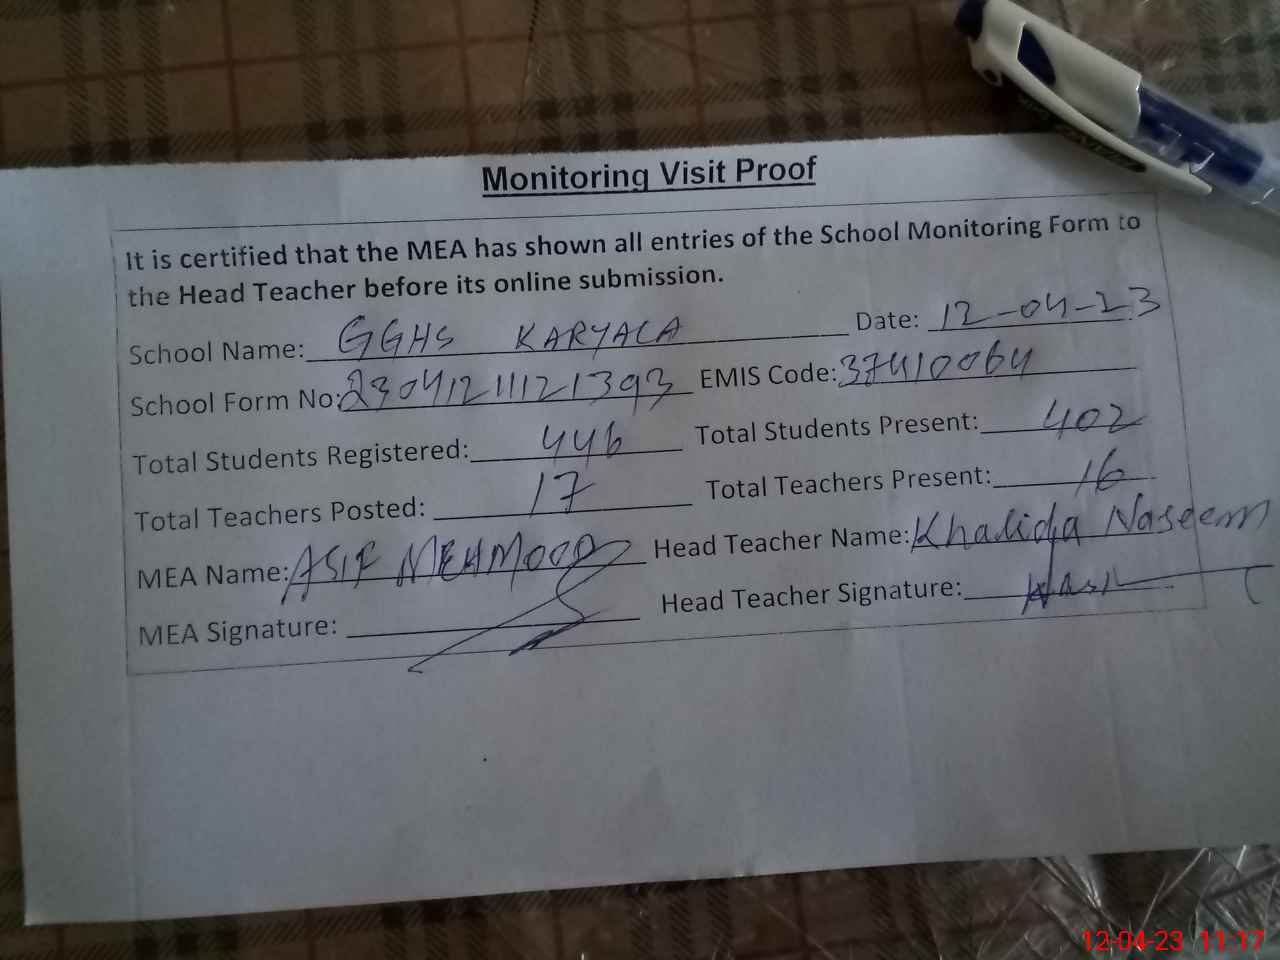 Monitoring Visit Proof
It is certified that the MEA has shown all entries of the School Monitoring Form to
the Head Teacher before its online submission.
School Name: GGHS KARYALA Date: 12-04-23
School Form No: 23041211121393 EMIS Code: 37410064
Total Students Registered: 446 Total Students Present: 402
Total Teachers Posted: 17 Total Teachers Present: 16
MEA Name: ASIF MEHMOOD Head Teacher Name: Khalida Naseem
MEA Signature: Head Teacher Signature:
12-04-23 11:17